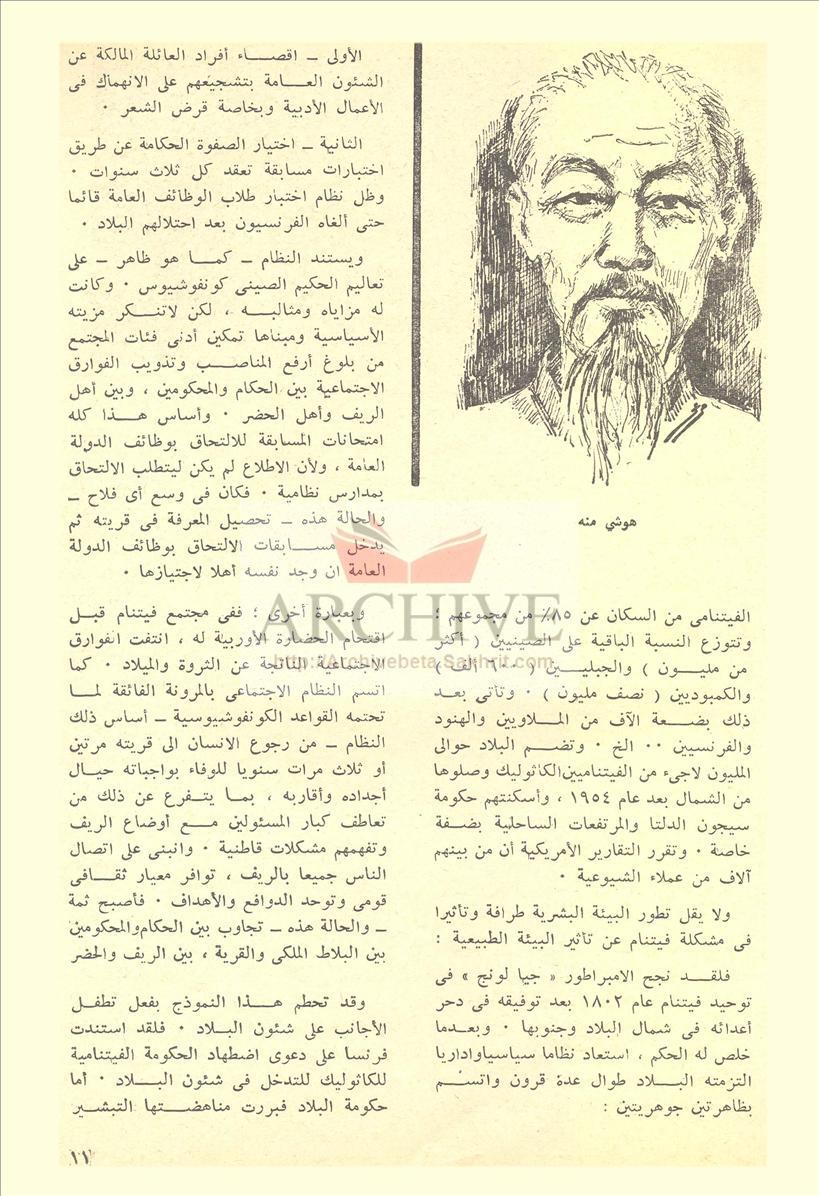 هوشي منه
الفيتنامى من السكان عن ٨٥٪ من مجموعهم ؛
وتتوزع النسبة الباقية على الصينيين ( أكثر
من مليـــون ) والجبليـــين ( ٦٠٠ ألف )
والكمبوديين ( نصف مليون ) ٠ وتأتى بعـد
ذلك بضـــعة آلاف من المـــلاويين والهنود
والفرنسيين ٠٠ الخ ٠ وتضـــم البلاد حوالى
المليون لاجىء من الفيتناميين الكاثوليك وصلوها
من الشمال بعد عام ١٩٥٤ ، وأسكنتهم حكومة
سيجون الدلتا والمرتفعات الساحلية بضـــفة
خاصة ٠ وتقرر التقارير الأمريكية أن من بينهم
آلاف من عملاء الشيوعية ٠
ولا يقل تطور البيئة البشرية طرافة وتأثيرا
فى مشكلة فيتنام عن تأثير البيئة الطبيعية :
فلقـــد نجح الامبراطور « جيا لونج » فى
توحيد فيتنام عام ١٨٠٢ بعد توفيقه فى دحر
أعدائه فى شمال البلاد وجنوبها ٠ وبعـدما
خلص له الحكم ، استعاد نظاما سياسياواداريا
التزمته البـــلاد طوال عدة قرون واتســـم
بظاهرتين جوهريتين :
الأولى ــ اقصـــاء أفراد العائلة المالكة عن
الشئون العـــامة بتشجيعهم على الانهماك فى
الأعمال الأدبية وبخاصة قرض الشعر ٠
الثانية ــ اختيار الصفوة الحكامة عن طريق
اختبارات مسابقة تعقد كل ثلاث سنوات ٠
وظل نظام اختبار طلاب الوظائف العامة قائما
حتى ألغاه الفرنسيون بعد احتلالهم البلاد ٠
ويستند النظام ــ كمـــا هو ظاهر ــ على
تعاليم الحكيم الصينى كونفوشيوس ٠ وكانت
له مزاياه ومثالبـــه ، لكن لاتنـــكر مزيته
الأسياسية ومبناها تمكين أدنى فئات المجتمع
من بلوغ أرفع المناصـــب وتذويب الفوارق
الاجتماعية بين الحكام والمحكومين ، وبين أهل
الريف وأهل الحضر ٠ وأساس هـــذا كله
امتحانات المسابقة للالتحاق بوظائف الدولة
العامة ، ولأن الاطلاع لم يكن ليتطلب الالتحاق
بمدارس نظامية ٠ فكان فى وسع أى فلاح ــ
والحالة هذه ــ تحصيل المعرفة فى قريته ثم
يدخل مســـابقات الالتحاق بوظائف الدولة
العامة ان وجد نفسه أهلا لاجتيازها ٠
وبعبارة أخرى ؛ ففى مجتمع فيتنام قبـــل
اقتحام الحضارة الأوربية له ، انتفت الفوارق
الاجتماعية الناتجة عن الثروة والميلاد ٠ كما
اتسم النظام الاجتماعى بالمرونة الفائقة لمـــا
تحتمه القواعد الكونفوشيوسية ــ أساس ذلك
النظام ــ من رجوع الانسان الى قريته مرتين
أو ثلاث مرات سنويا للوفاء بواجباته حيـــال
أجداده وأقاربه ، بمـــا يتـــفرع عن ذلك من
تعاطف كبار المسئولين مـــع أوضاع الريف
وتفهمهم مشكلات قاطنية ٠ وانبنى على اتصال
الناس جميعا بالريف ، توافر معيار ثقـــافى
قومى وتوحد الدوافع والأهداف ٠ فأصبح ثمة
ــ والحالة هذه ــ تجاوب بين الحكام والمحكومين
بين البلاط الملكى والقرية ، بين الريف والحضر
وقد تحطم هـــذا النموذج بفعل تطفـــل
الأجانب على شئون البـــلاد ٠ فلقد استندت
فرنسا على دعوى اضطهاد الحكومة الفيتنامية
للكاثوليك للتدخل فى شئون البـــلاد ٠ أما
حكومة البلاد فبررت مناهضـــتها التبشـــير
١١
ARCHIVE
http://Archivebeta.Sakhrit.com